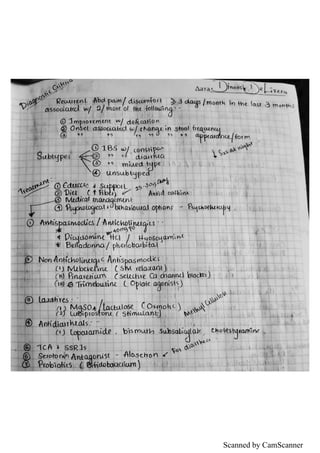 Diagnostic Criteria
Recurrent Abd pain / discomfort ≥ 3 days / month in the last 3 months
associated w/ 2/more of the following:-
① Improvement w/ defication
② Onset associated w/ change in stool frequency
③ " " " " " " appearance/form
Subtypes
① IBS w/ constipan
② " " diarrhea
③ " mixed type
④ unsubtyped
Treatment:
① Educate & support
② Diet (↑ Fiber) 25-30g/day Avoid caffeine
③ Medical management
④ Psychological & behavioural options - Psychotherapy.
① Antispasmodics / Anticholinergics:-
* Dicyclomine HCl / Hyoscyamine
* Belladonna / phenobarbital
② Non Anticholinergic Antispasmodics
(i) Mibeverine (SM relaxant)
(ii) Pinaverium (selective Ca channel blocker)
(iii) Trimebutine (Opiate agonists)
③ Laxatives:-
1) MgSO4 / lactulose (Osmotic)
2) Lubiprostone (stimulant) Methyl Cellulose
④ Antidiarrheals:-
(1) Loparamide, bismuth subsalicylate cholestyramine
⑤ TCA & SSRIs
⑥ Serotonin Antagonist - Alosetron ✓ For diarrhea
⑦ Probiotics (Bifidobacterium)
Scanned by CamScanner